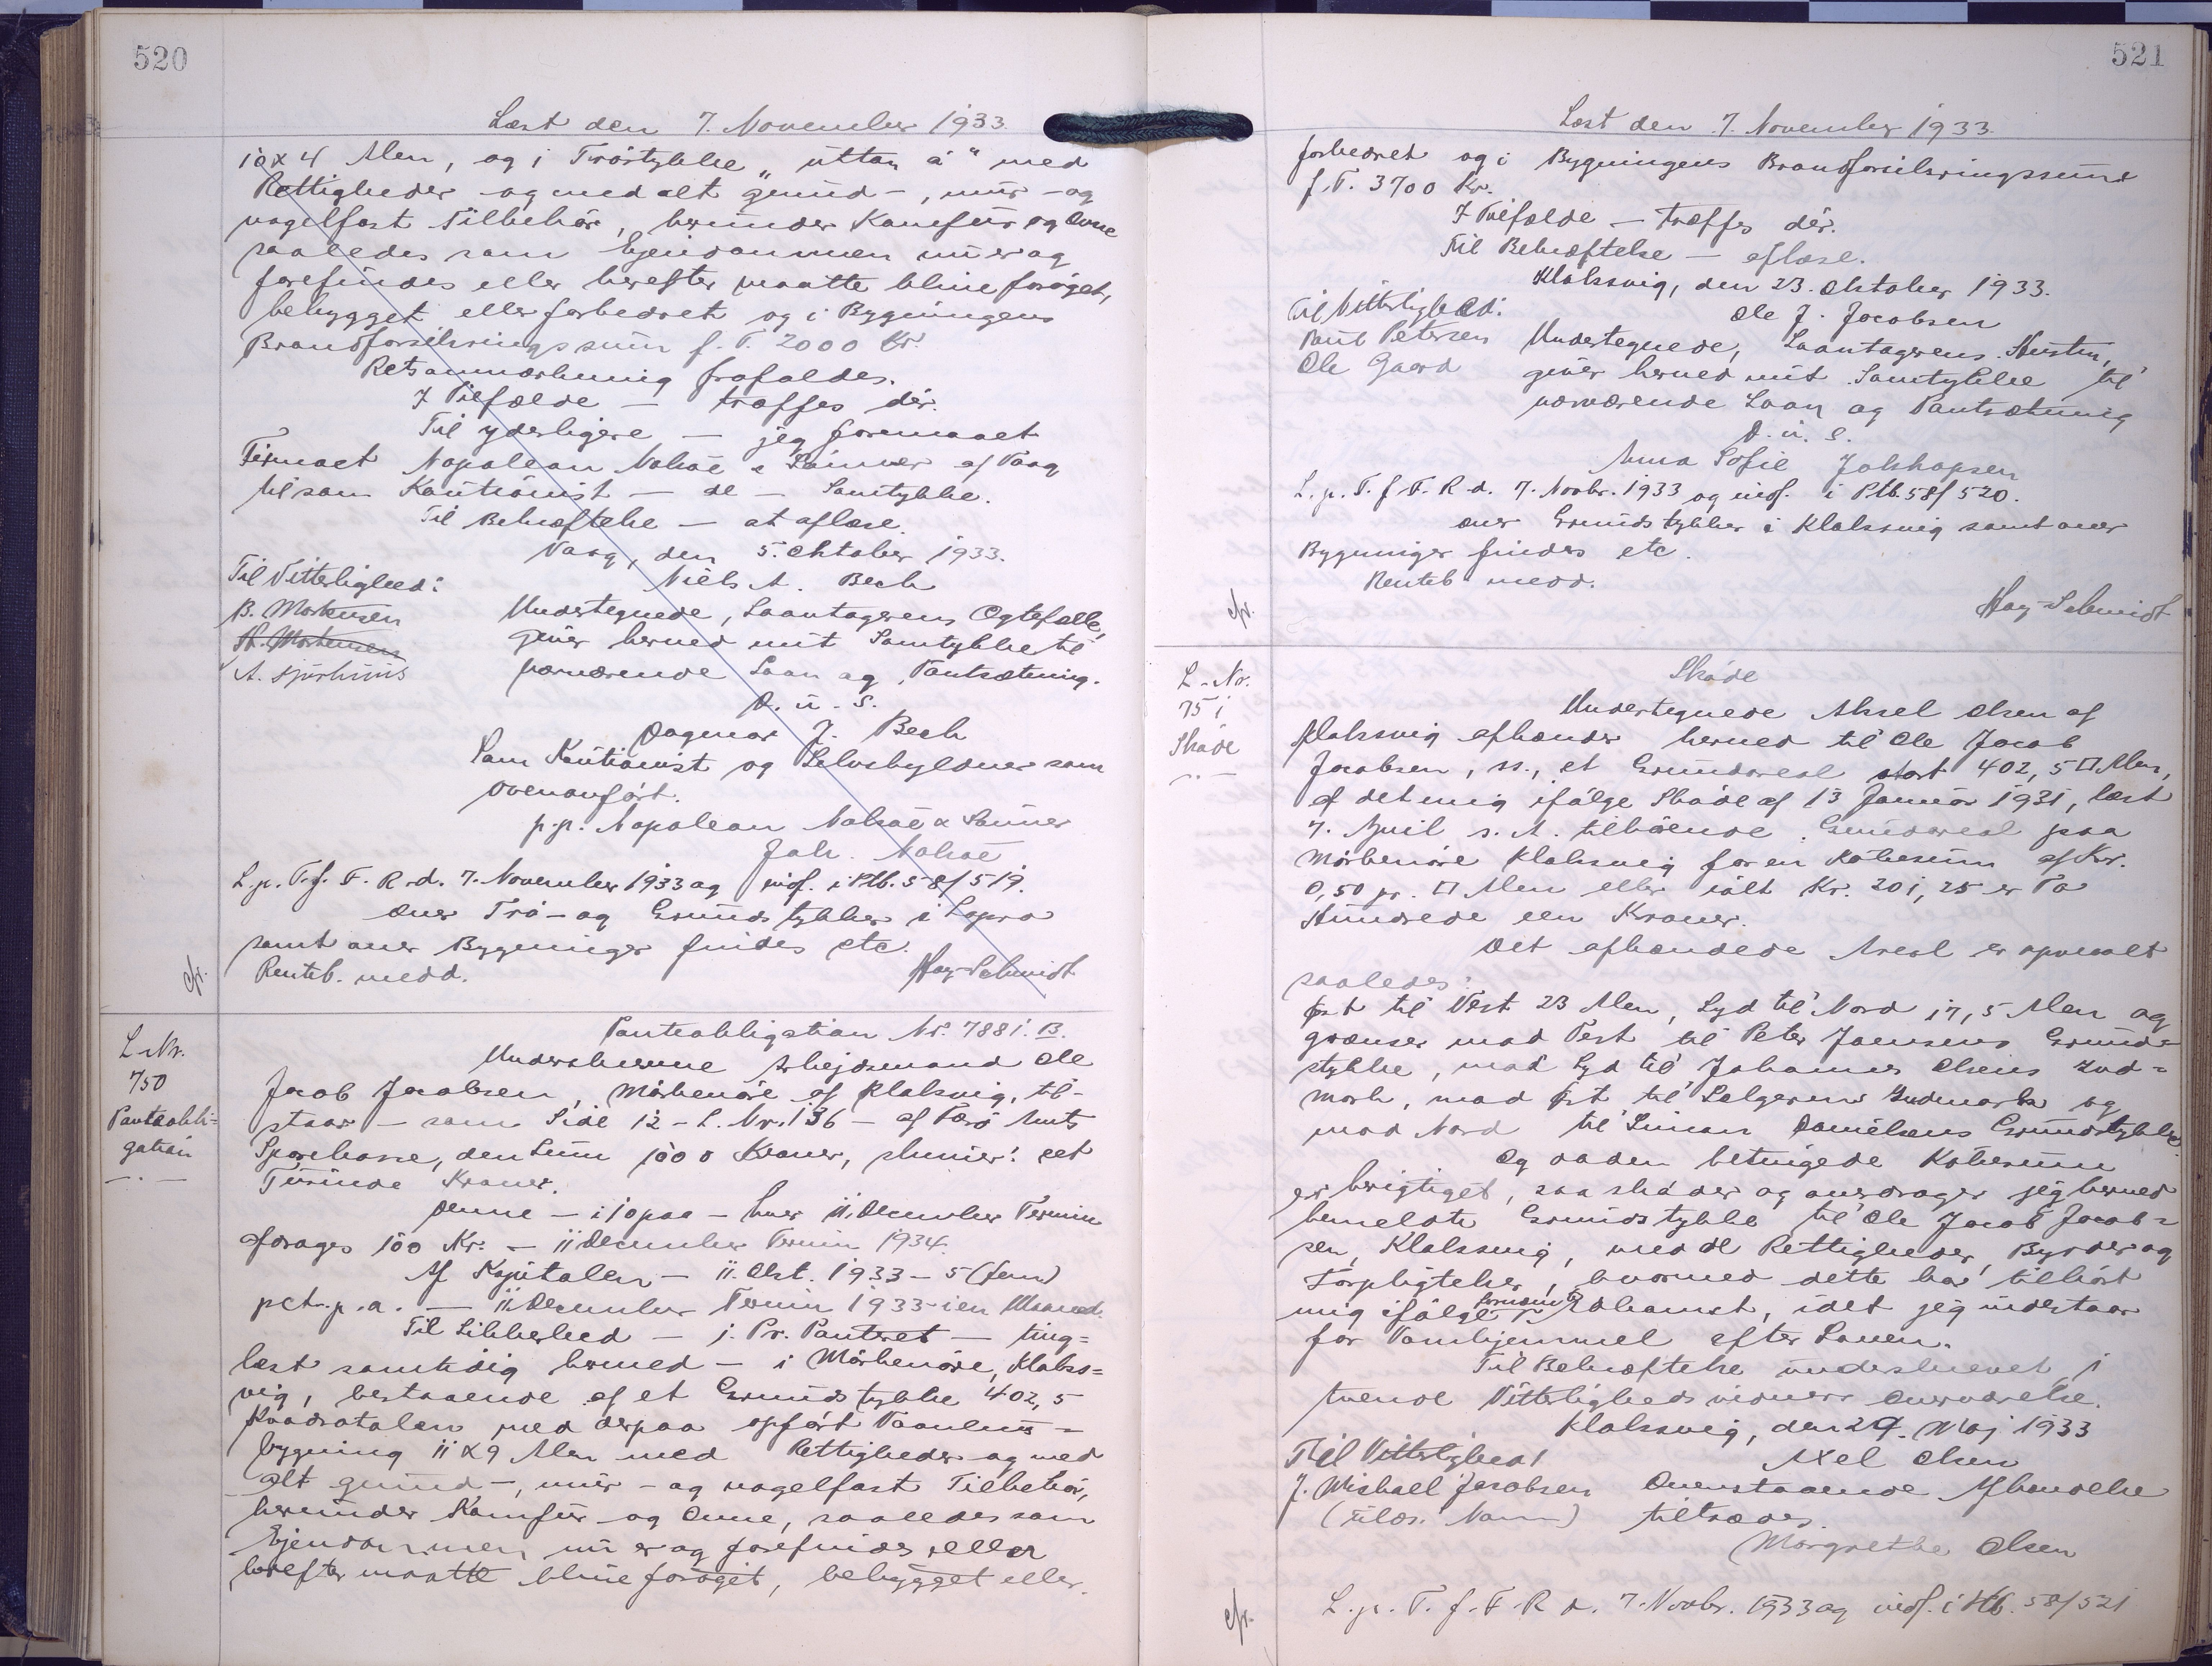 520
Læst den 7. November 1933.
10x4 Alen, og i Tröstykke „uttan á" med
Rettigheder og med alt grund-, mur- og
nagelfast Tilbehör, herunder Komfur og Ovne
saaledes som Ejendommen nu er og
forefindes eller herefter maatte blive foröget,
bebygget eller forbedret og i Bygningens
Brandforsikringssum f. T. 2000 Kr.
Retsanmærkning frafaldes.
I Tilfælde — træffes dér.
Til yderligere — jeg formaaet
Firmaet Napoleon Nolsöe & Sönner af Vaag
til som Kautionist — de — Samtykke.
Til Bekræftelse — at aflæse.
Vaag, den 5. Oktober 1933.
Til Vitterlighed:
Niels A. Bech
B. Mortensen
Undertegnede, Laantagerens Ogtefælle,
H. Mortensen
giver herved mit Samtykke til
A. Sjúrhuus
nærværende Laan og Pantsætning.
D. u. S.
Dagmar J. Bech
Som Kautionist og Selvskyldner som
ovenanfört.
p.p. Napoleon Nolsöe & Sönner
Joh. Nolsöe
L. p. T. f. F. R. d. 7. November 1933 og indf. i Ptb. 58/519.
Over Trö- og Grundstykker i Lopra
samt over Bygninger findes etc.
Renteb. medd.
Hay-Schmidt
cfr.
L-Nr.
750
Panteobli=
gation
Panteobligation Nr. 7881. B.
Underskrevne Arbejdsmand Ole
Jacob Jacobsen, Mörkenöre af Klaksvig, til-
staar — som Side 12 - L. Nr. 136 — af Færö Amts
Sparekasse, den Sum 1000 Kroner, skriver: eet
Tusinde Kroner.
Denne — i 10 paa — hver 11. December Termin
afdrages 100 Kr. — 11 December Termin 1934.
Af Kapitalen — 11. Okt. 1933 — 5 (fem)
pct. p. a. — 11 December Termin 1933 - i en Maaned.
Til Sikkerhed — 1. Pr. Panteret — ting=
læst samtidig hermed — i Mörkenöre, Klaks=
vig, bestaaende af et Grundstykke 402,5
Kvadratalen med derpaa opfört Vaanhus-
bygning 11 x 9 Alen med Rettigheder og med
alt grund-, mur- og nagelfast Tilbehör,
herunder Komfur og Ovne, saaledes som
Ejendommen nu er og forefindes eller
herefter maatte blive foröget, bebygget eller
521
Læst den 7. November 1933.
forbedret og i Bygningens Brandforsikringssum
f. T. 3700 Kr.
I Tilfælde — træffes dér.
Til Bekræftelse — aflæse.
Klaksvig, den 23. Oktober 1933.
Til Vitterlighed:
Ole J. Jacobsen
Poul Petersen
Undertegnede, Laantagerens Hustru,
Ole Gaard
giver herved mit Samtykke til
nærværende Laan og Pantsætning
D. u. S.
Anna Sofie Jakobsen
L. p. T. f. F. R. d. 7. Novbr. 1933 og indf. i Ptb. 58/520.
Over Grundstykker i Klaksvig samt over
Bygninger findes etc.
Renteb. medd.
Hay-Schmidt
cfr.
L-Nr.
751
Sköde
Sköde
Undertegnede Aksel Olsen af
Klaksvig afhænder herved til Ole Jacob
Jacobsen, ss., et Grundareal stort 402,5 □ Alen,
af det mig ifölge Sköde af 13 Januar 1931, læst
7. April s. A. tilhörende Grundareal paa
Mörkenöre Klaksvig for en Köbesum af Kr.
0,50 pr. □ Alen eller ialt Kr. 201,25 er To
Hundrede een Kroner.
Det afhændede Areal er opmaalt
saaledes:
Öst til Vest 23 Alen, Syd til Nord 17,5 Alen og
grænser mod Vest til Peter Joensens Grund=
stykke, mod Syd til Johannes Olsens Ind=
mark, mod Öst til Sælgerens Indmark og
mod Nord til Simon Danielsens Grundstykke.
Og da den betingede Köbesum
er berigtiget, saa sköder og overdrager jeg herved
bemeldte Grundstykke til Ole Jacob Jacob=
sen, Klaksvig, med de Rettigheder, Byrder og
Forpligtelser, hvormed dette har tilhört
mig ifölge fornævnte Adkomst, idet jeg indestaar
for Vanhjemmel efter Loven.
Til Bekræftelse underskrevet i
tvende Vitterlighedsvidners Overværelse.
Klaksvig, den 29. Maj 1933
Til Vitterlighed!
Axel Olsen
J. Michael Jacobsen
Ovenstaaende Afhændelse
(Ulæs. Navn)
tiltrædes.
Margrethe Olsen
cfr.
L. p. T. f. F. R. d. 7. Novbr. 1933 og indf. i Ptb. 58/521